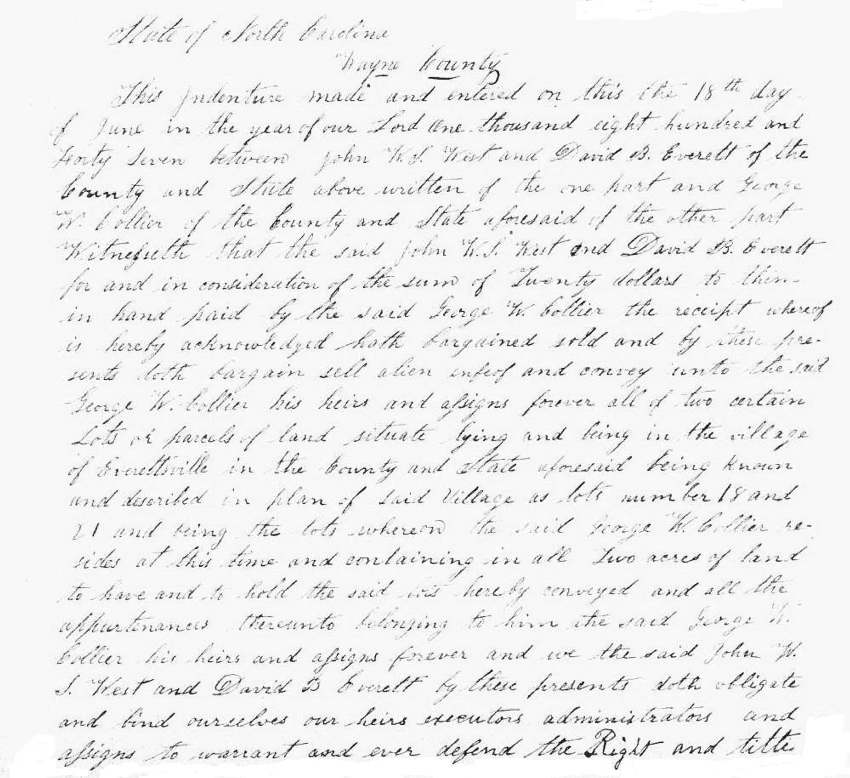 State of North Carolina
Wayne County
This Indenture made and entered on this the 18th day
of June in the year of our Lord One thousand eight hundred and
Forty Seven between John W.S. West and David B. Everett of the
County and State above written of the one part and George
W. Collier of the County and State aforesaid of the other part
Witnesseth that the said John W.S. West and David B. Everett
for and in consideration of the sum of Twenty dollars to them
in hand paid by the said George W. Collier the receipt whereof
is hereby acknowledged hath bargained sold and by these pre-
sents doth bargain sell alien enfeof and convey unto the said
George W. Collier his heirs and assigns forever all of two certain
Lots or parcels of land situate lying and being in the village
of Everettsville in the County and State aforesaid being known
and described in plan of said Village as lots number 18 and
21 and being the lots whereon the said George W. Collier re-
sides at this time and containing in all Two acres of land
to have and to hold the said lots hereby conveyed and all the
appurtenances thereunto belonging to him the said George W.
Collier his heirs and assigns forever and we the said John W.
S. West and David B Everett by these presents doth obligate
and bind ourselves our heirs executors administrators and
assigns to warrant and ever defend the Right and title